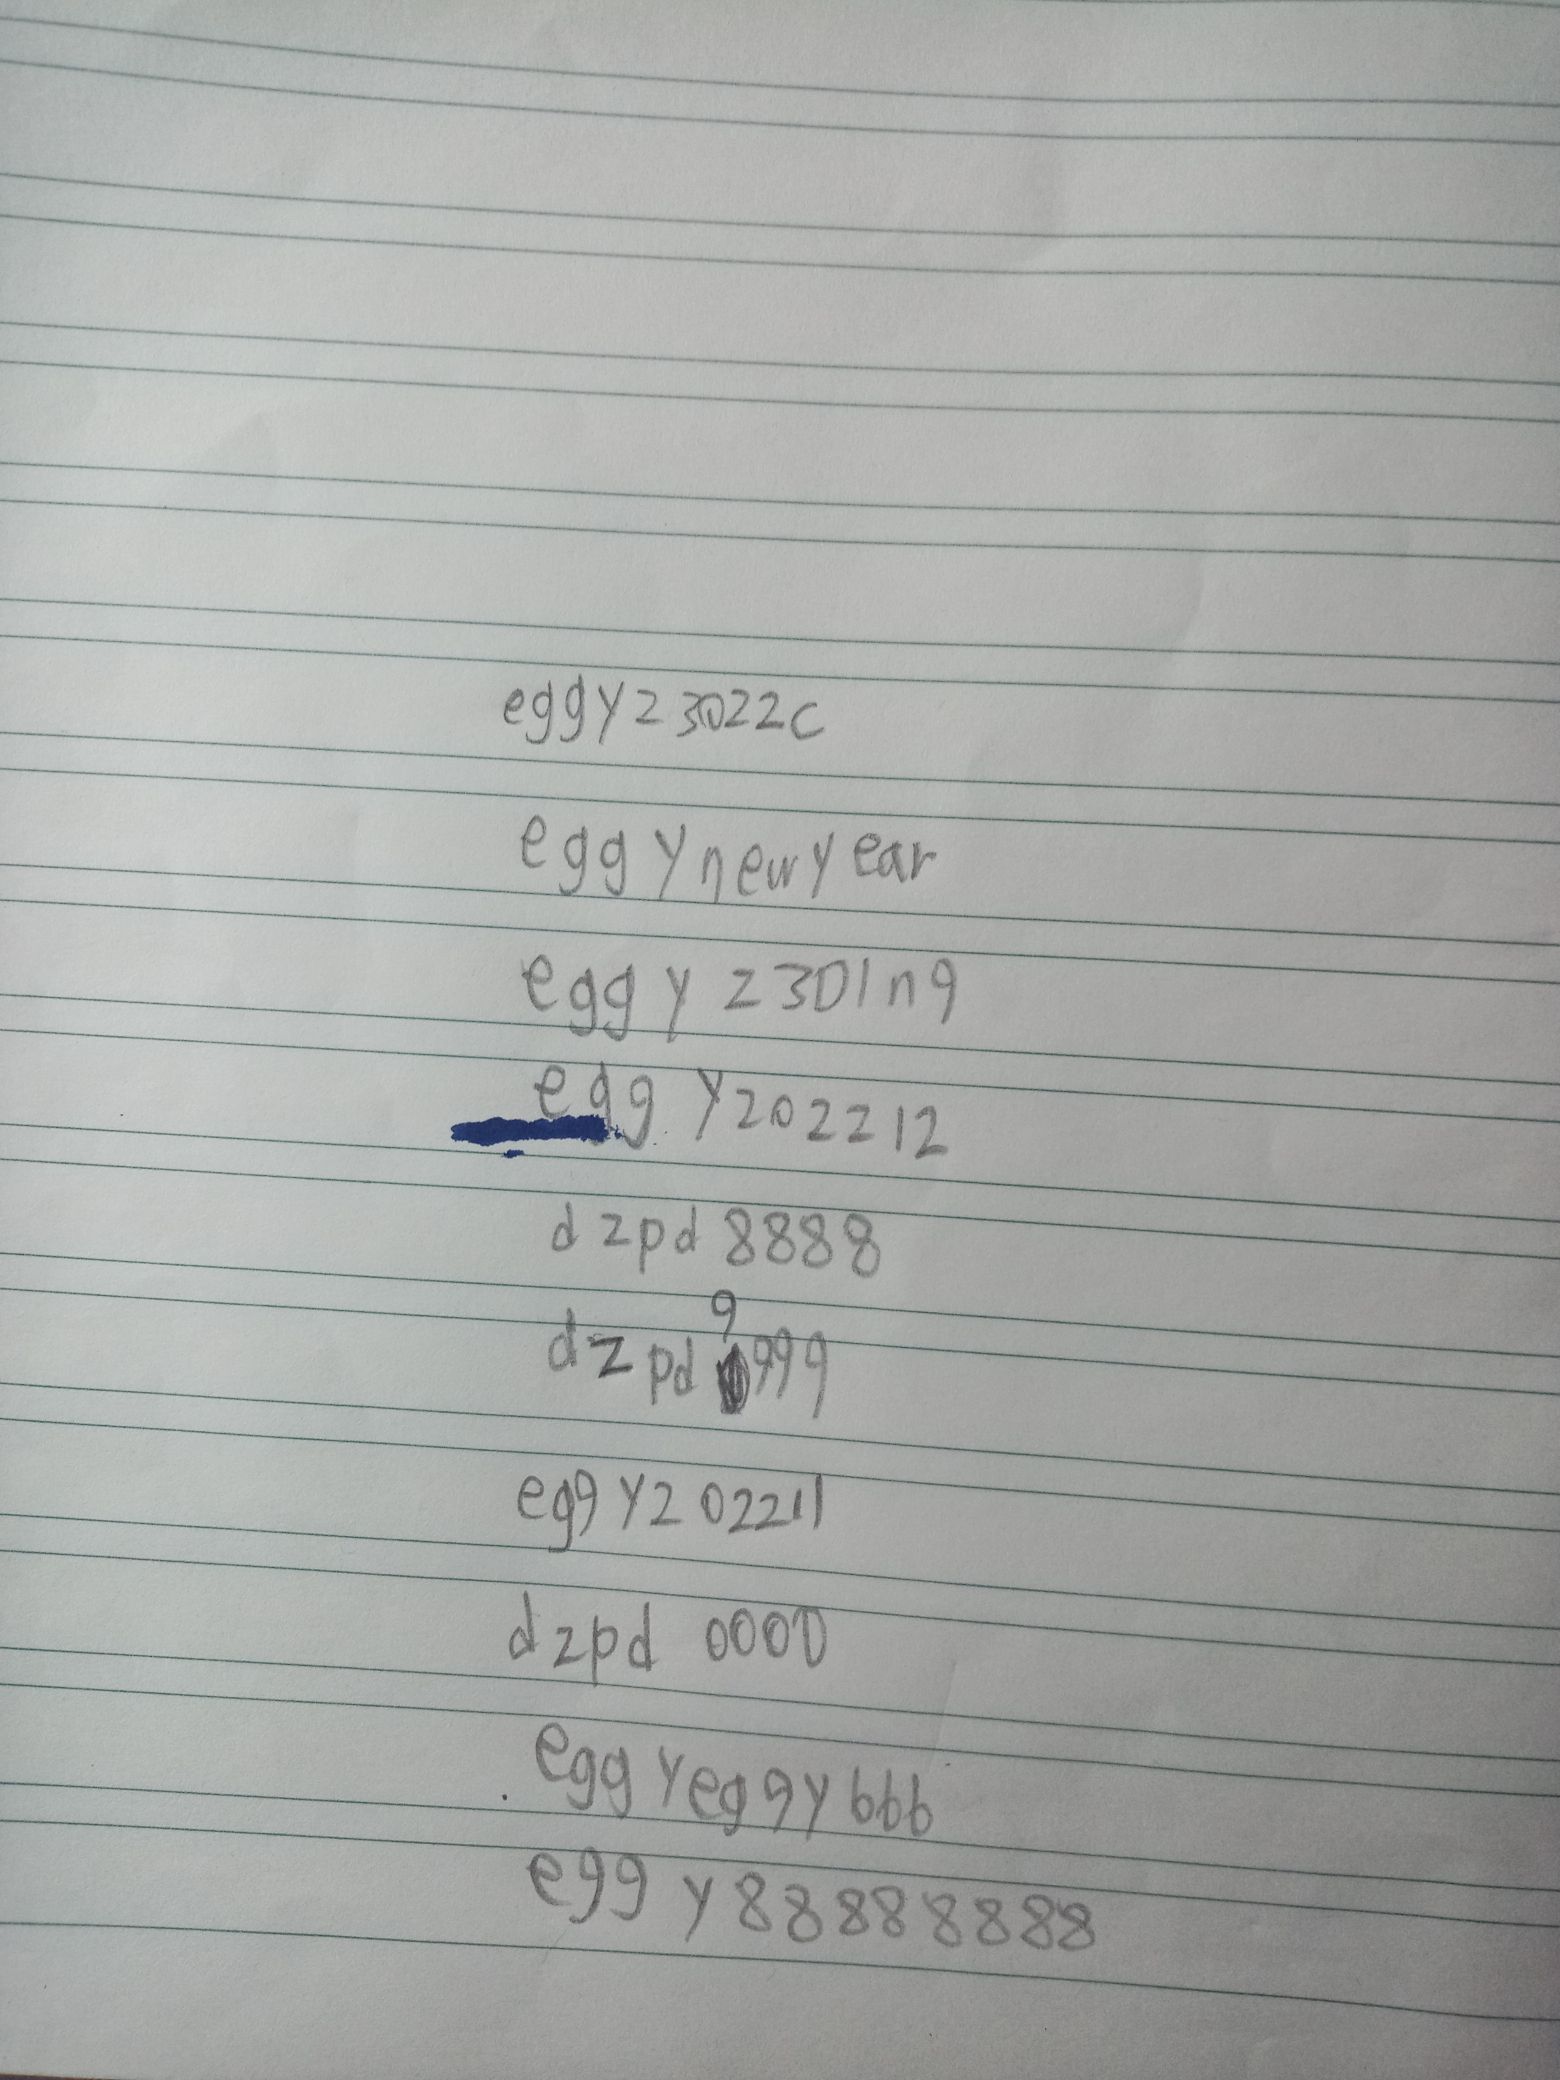 eggy23022c
eggynewyear
eggy2301ng
eggy202212
dzpd8888
dzpd9999
eggy202211
dzpd0000
eggyeggy666
eggy88888888